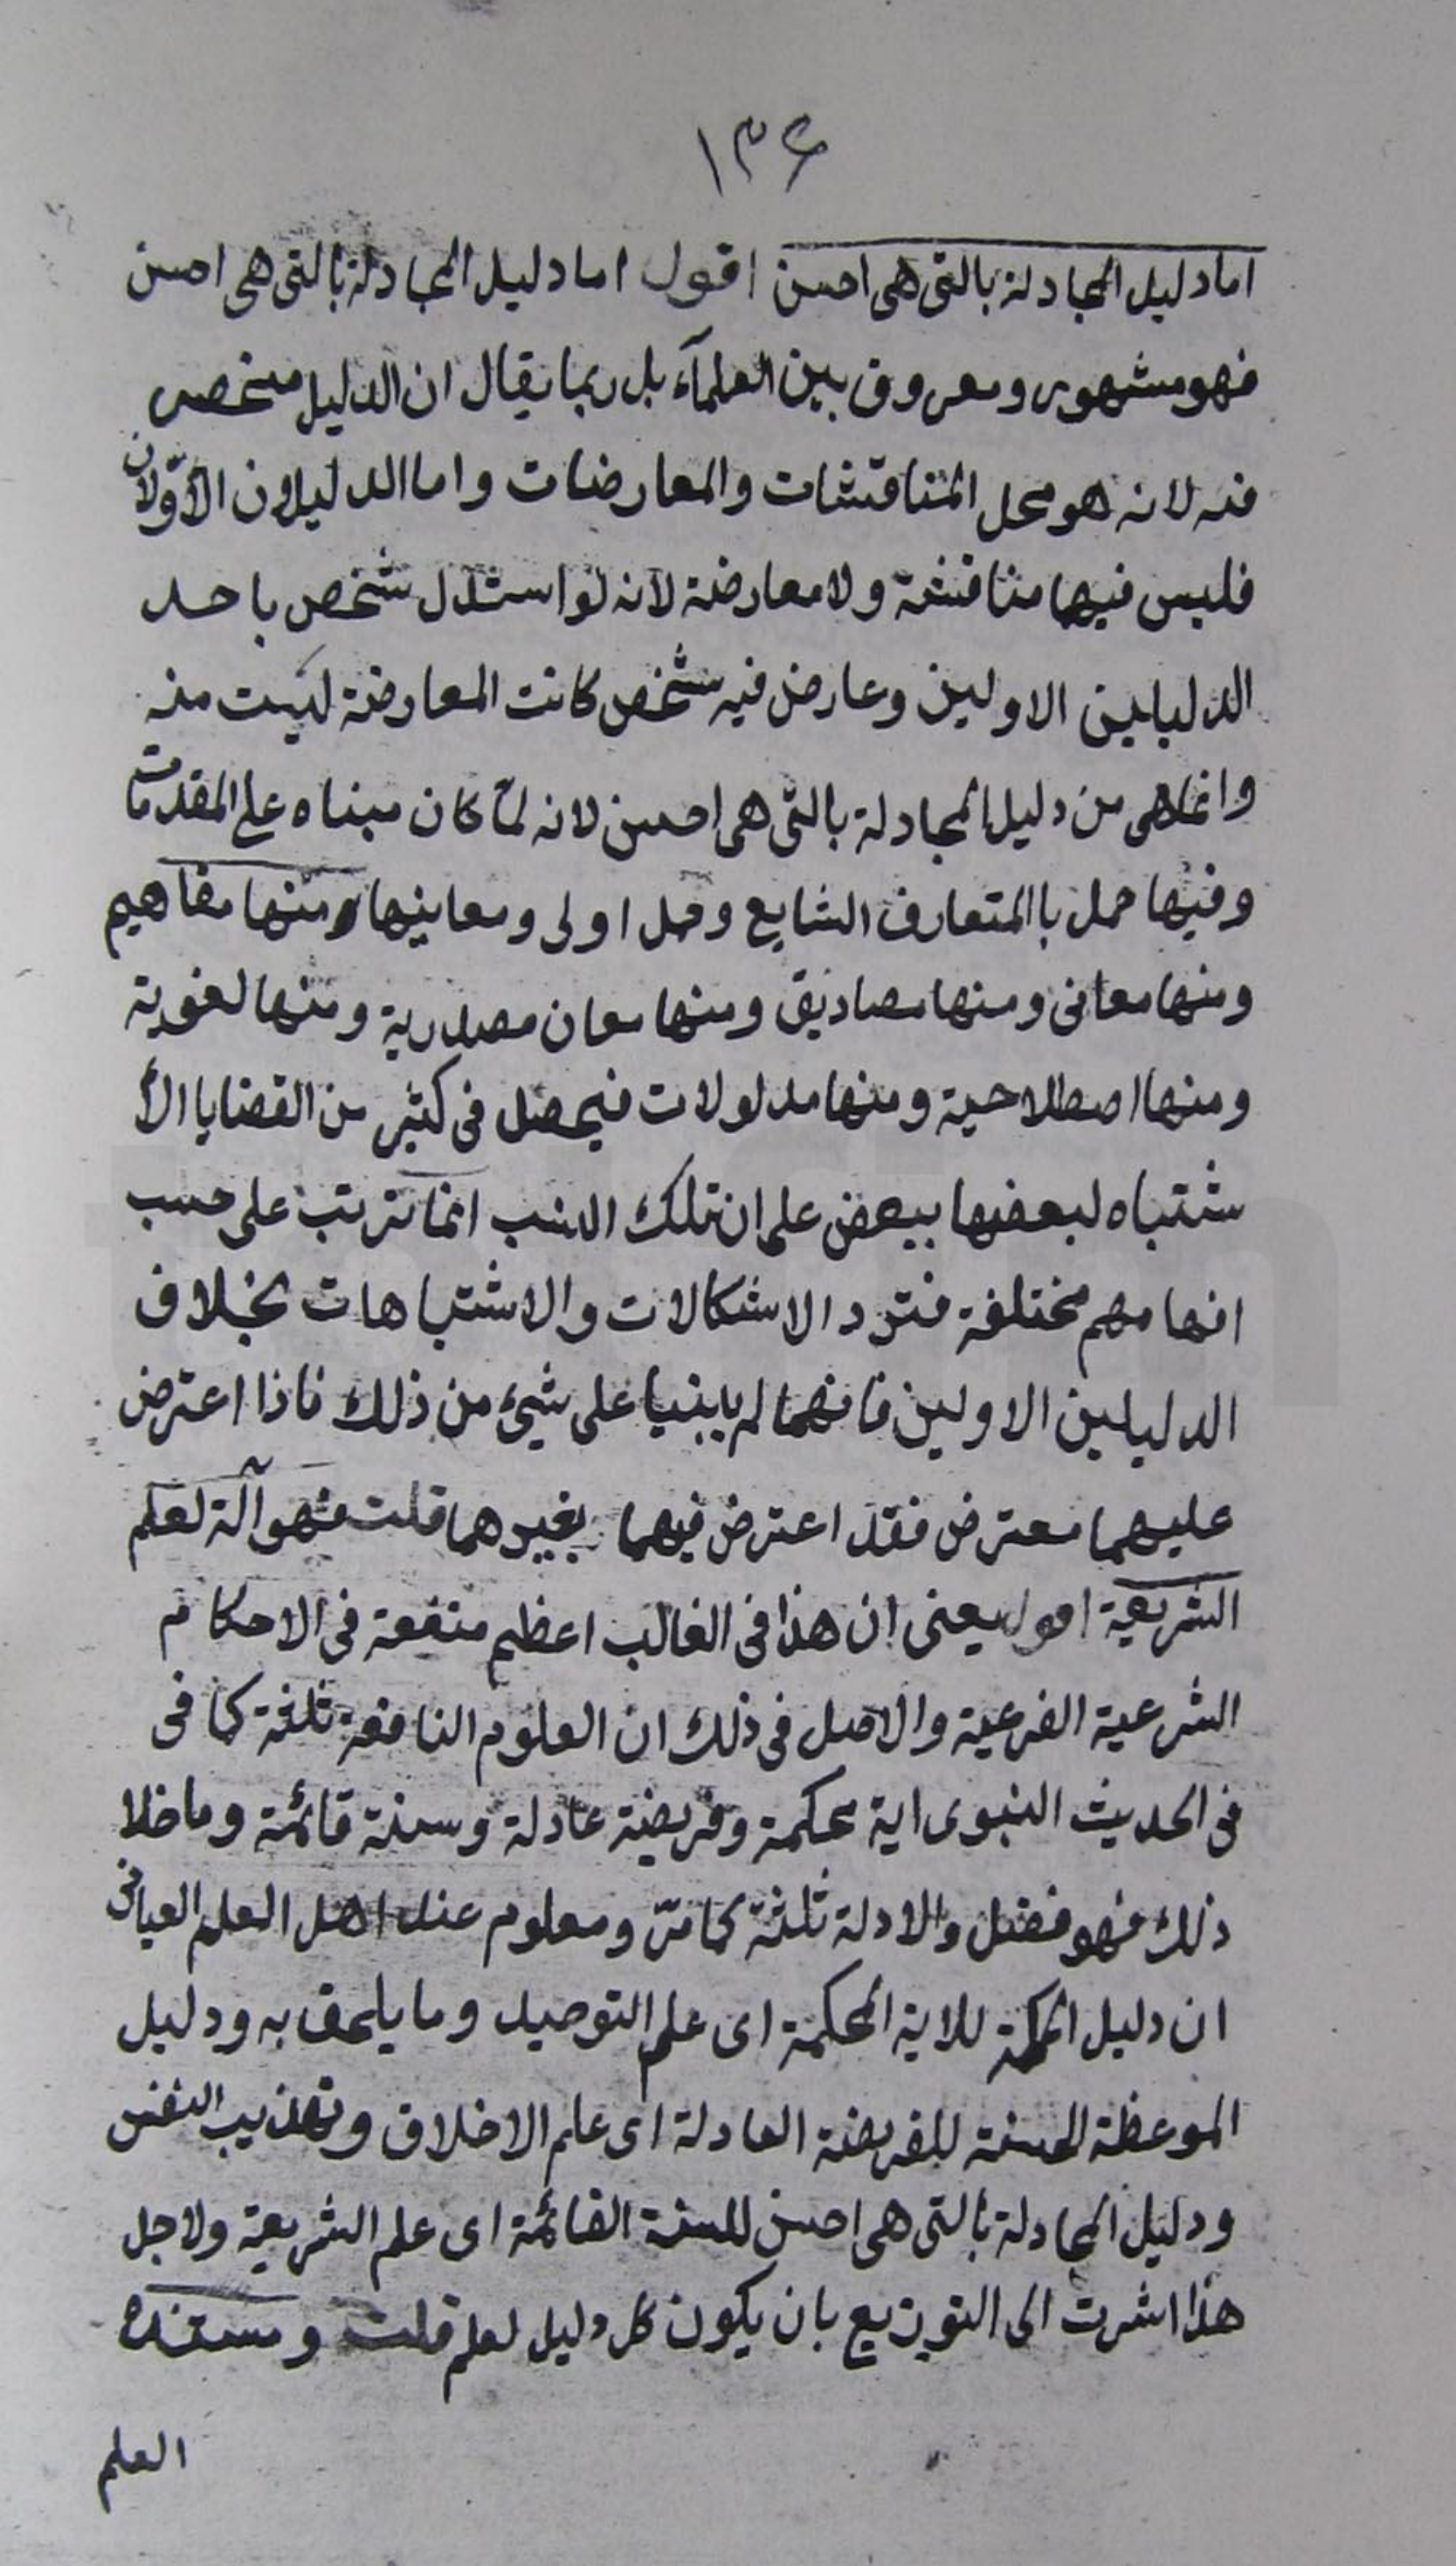 ١٣٤
اما دليل المجادلة بالتى هى احسن اقول اما دليل المجادلة بالتى هى احسن
فهو مشهور ومعروف بين العلمآء بل ربما يقال ان الدليل منحصر
فيه لانه هو محل المناقشات والمعارضات واما الدليلان الاوّلان
فليس فيهما مناقشة ولا معارضة لانه لو استدل شخص باحد
الدليلين الاولين وعارض فيه شخص كانت المعارضة ليست منه
وانما هى من دليل المجادلة بالتى هى احسن لانه لمّا كان مبناه على المقدمات
وفيها حمل باالمتعارف الشايع وحمل اولى ومعاينها ومنها مفاهيم
ومنها معانى ومنها مصاديق ومنها معان مصدرية ومنها لغوية
ومنها اصطلاحية ومنها مدلولات فيحصل فى كثير من القضايا الأ
شتباه لبعضها ببعض على ان تلك النسب انما ترتب على حسب
افهامهم مختلفة فترد الاشكالات والاشتباهات بخلاف
الدليلين الاولين فانهما لم يبنيا على شيئ من ذلك فاذا اعترض
عليهما معترض فقد اعترض فيهما بغيرهما قلت فهو آلة لعلم
الشريعة اقول يعنى ان هذا فى الغالب اعظم منفعة فى الاحكام
الشرعية الفرعية والاصل فى ذلك ان العلوم النافعة ثلثة كما فى
فى الحديث النبوى اية محكمة وفريضة عادلة وسنة قائمة وما خلا
ذلك فهو فضل والادلة ثلثة كما مرّ ومعلوم عند اهل العلم العيانى
ان دليل الحكمة للاية المحكمة اى علم التوحيد وما يلحق به ودليل
الموعظة الحسنة للفريضة العادلة اى علم الاخلاق وتهذيب النفس
ودليل المجادلة بالتى هى احسن للسنة القائمة اى علم الشريعة ولاجل
هذا اشرت الى التوزيع بان يكون كل دليل لعلم قلت ومستنده
العلم